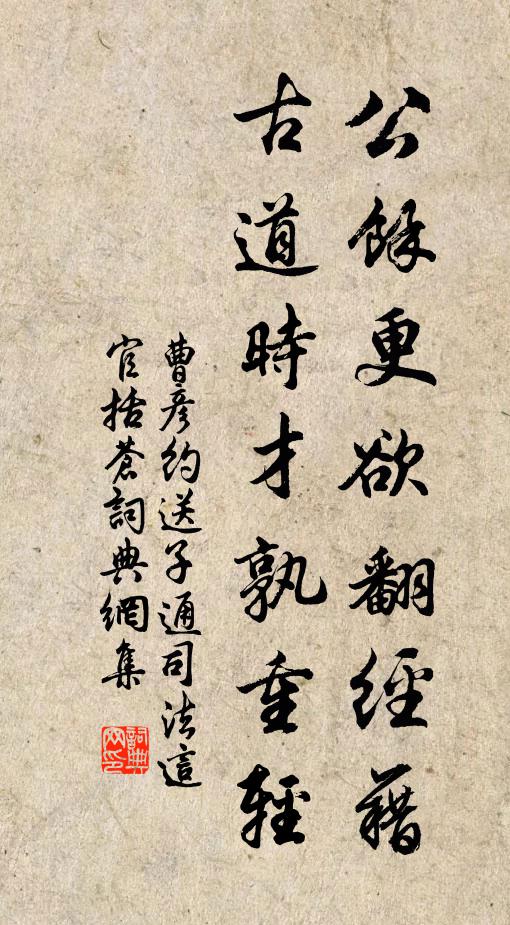 公餘更欲翻經藉
古道時才孰重輕
曹彥約送子通司法這
官括蒼詞典網集
詞典
网印